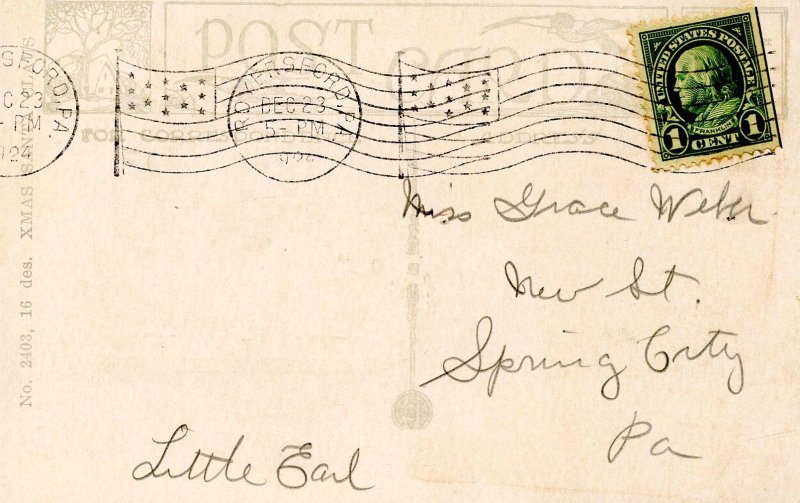 POST CARD
FOR CORRESPONDENCE
ADDRESS
ROYERSFORD, PA.
DEC 23
5 - PM
1924
UNITED STATES POSTAGE
FRANKLIN
1 CENT 1
No. 2403, 16 des. XMAS
Miss Grace Weber
New St.
Spring City
Pa
Little Earl